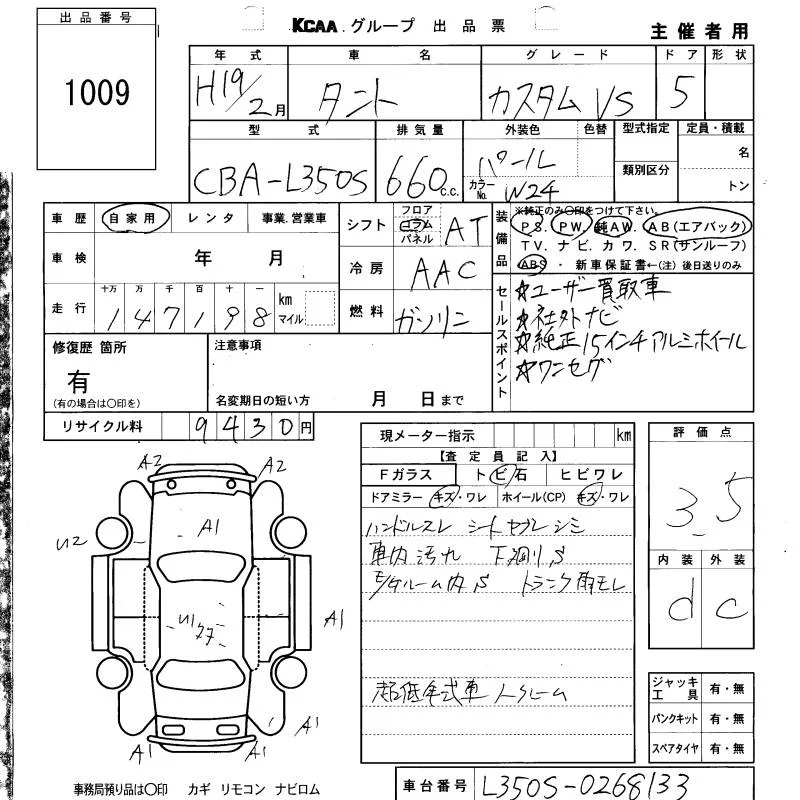 出品番号
1009
KCAA.グループ 出品票
主催者用
年式 車名 グレード ドア 形状
H19/2月 タント カスタム VS 5
型式 排気量 外装色 色替 型式指定 定員・積載
CBA-L350S 660c.c. パール 名
カラーNo. W24 類別区分 トン
車歴 自家用 レンタ 事業.営業車
シフト フロア コラム パネル AT
装備品 ※純正のみ〇印をつけて下さい。
PS. PW. 純AW. AB(エアバック)
TV. ナビ. カワ. SR(サンルーフ)
ABS ・ 新車保証書←(注) 後日送りのみ
車検 年 月
冷房 AAC
走行 十万 万 千 百 十 一 km マイル
147198
燃料 ガソリン
セールスポイント
☆ユーザー買取車
☆社外ナビ
☆純正15インチアルミホイール
☆ワンセグ
修復歴 箇所
有
(有の場合は〇印を)
注意事項
名変期日の短い方 月 日まで
リサイクル料 9430円
現メーター指示 km
【査定員記入】
Fガラス トビ石 ヒビワレ
ドアミラー キズ・ワレ ホイール(CP) キズ・ワレ
ハンドルスレ シート シミ
車内汚れ 下廻りS
ルーム内S トランク雨モレ
超低年式車 ノークレーム
評価点
3.5
内装 外装
d c
A2 A2
A1
U2
U1
A1
A1 A1 A1
ジャッキ工具 有・無
パンクキット 有・無
スペアタイヤ 有・無
事務局預り品は〇印 カギ リモコン ナビロム
車台番号 L350S-0268133